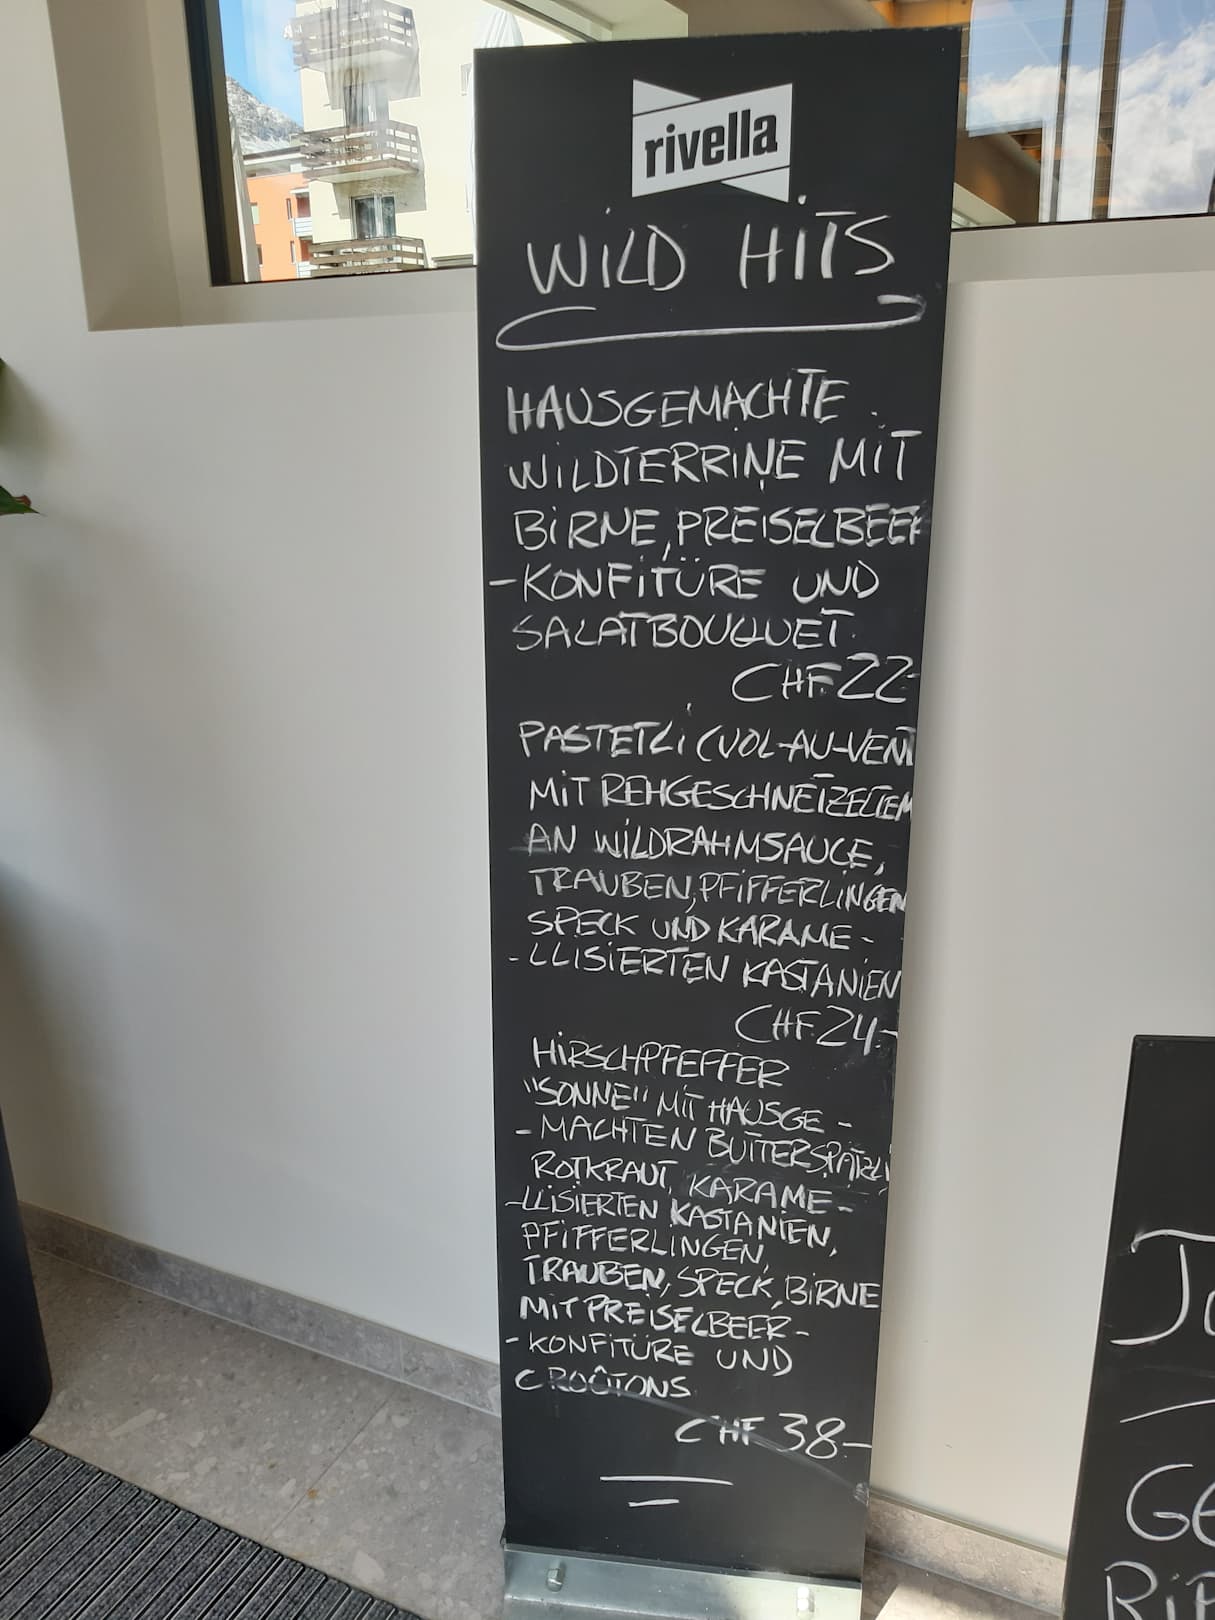 rivella
WILD HITS
HAUSGEMACHTE
WILDTERRINE MIT
BIRNE, PREISELBEER
-KONFITÜRE UND
SALATBOUQUET
CHF 22.-
PASTETLI (VOL-AU-VENT
MIT REHGESCHNETZELTEM
AN WILDRAHMSAUCE,
TRAUBEN, PFIFFERLINGEN
SPECK UND KARAME-
-LLISIERTEN KASTANIEN
CHF 24.-
HIRSCHPFEFFER
"SONNE" MIT HAUSGE-
-MACHTEN BUTTERSPÄTZLI
ROTKRAUT, KARAME-
-LLISIERTEN KASTANIEN,
PFIFFERLINGEN,
TRAUBEN, SPECK, BIRNE
MIT PREISELBEER-
-KONFITÜRE UND
CROÛTONS
CHF 38.-